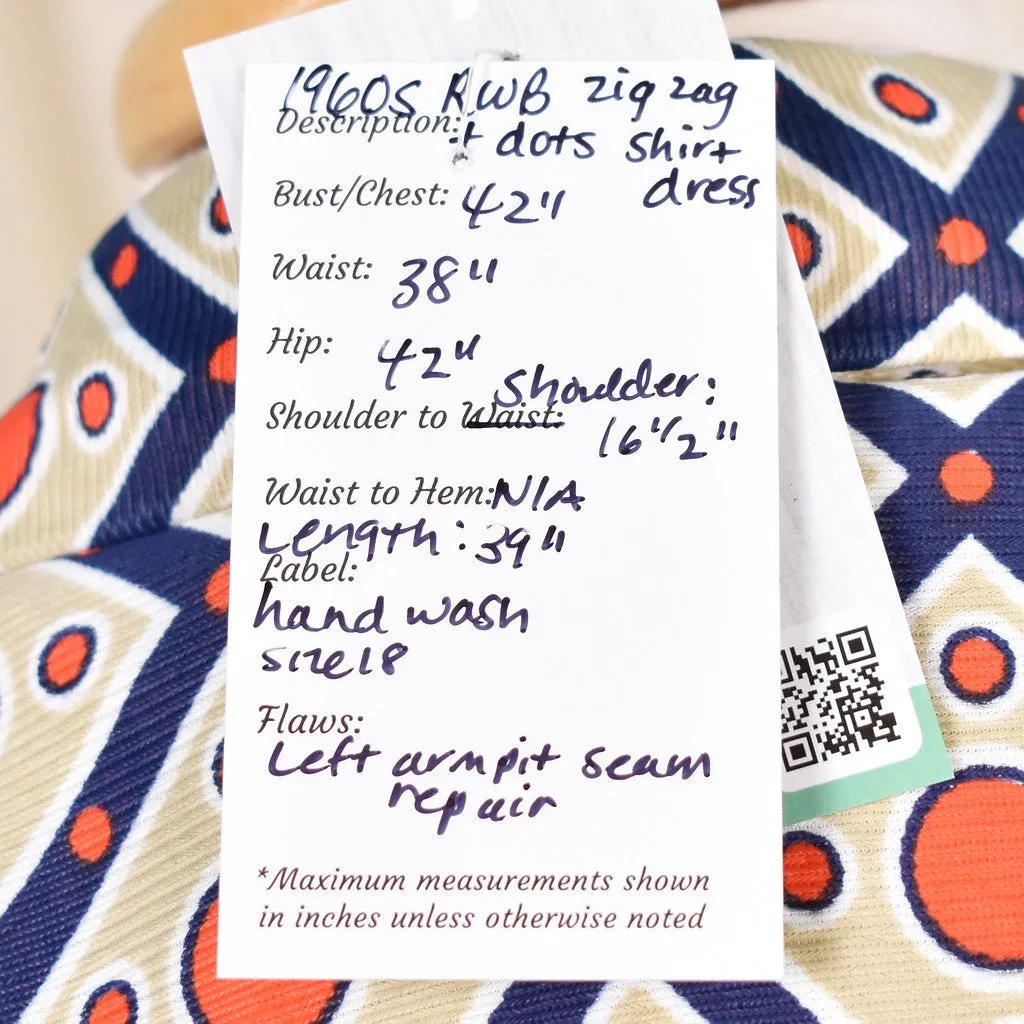 1960s RWB zig zag
Description: + dots shirt
dress
Bust/Chest: 42"
Waist: 38"
Hip: 42"
Shoulder:
Shoulder to Waist:
16 1/2"
Waist to Hem: N/A
Length: 39"
Label:
hand wash
size 18
Flaws:
Left armpit seam
repair
*Maximum measurements shown
in inches unless otherwise noted